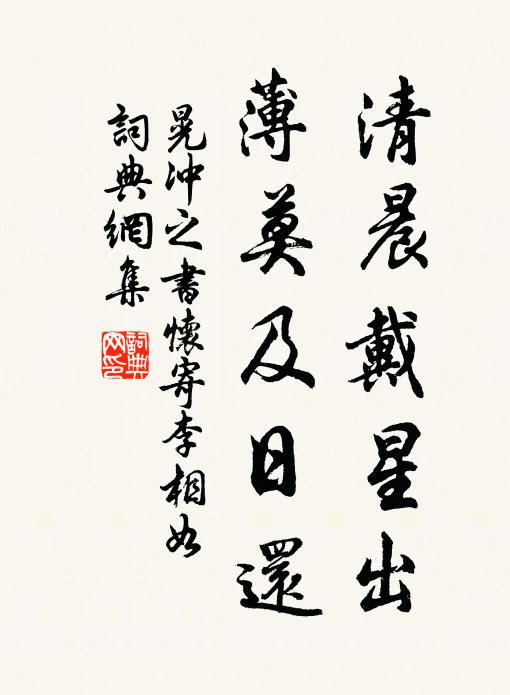 清晨戴星出
薄莫及日還
晁冲之書懷寄李相如
詞典網集
詞典网印